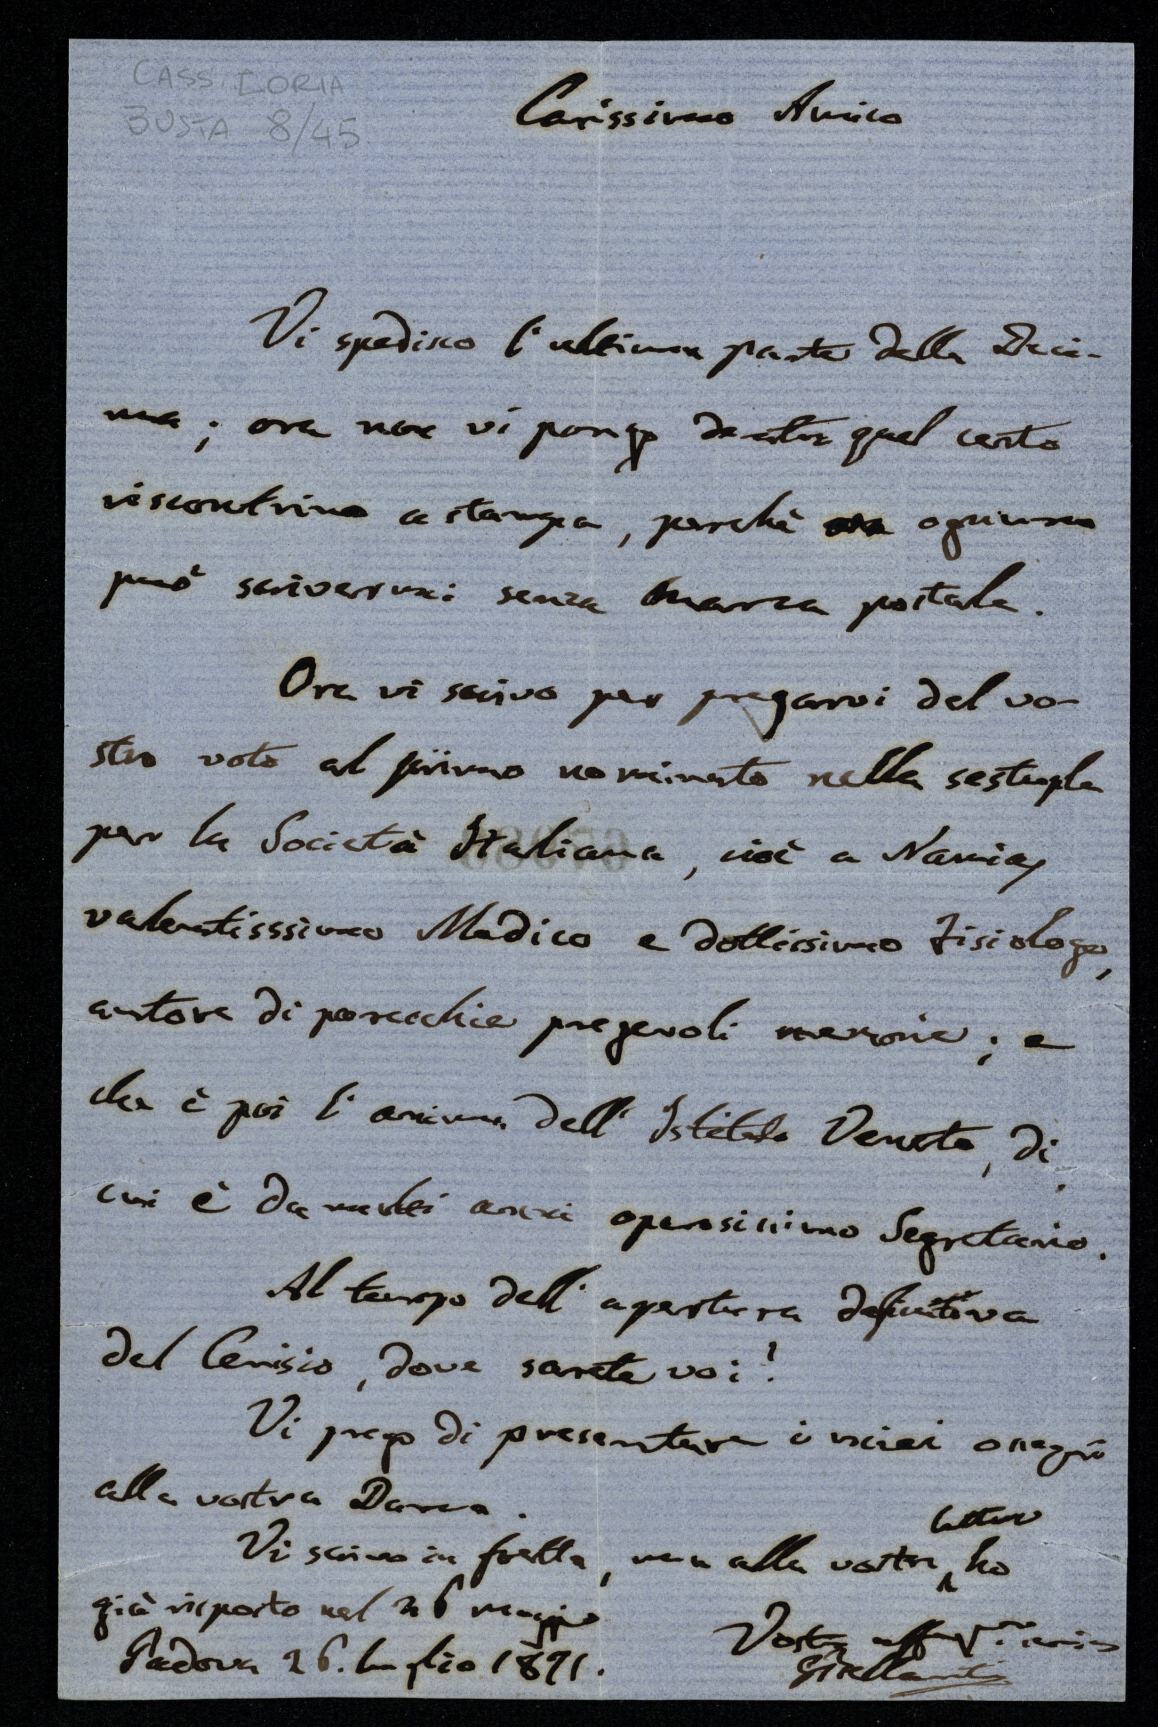 CASS. LORIA
BUSTA 8/45
Carissimo Amico
Vi spedisco l'ultima parte della Deci-
ma; ora non vi pongo dentro quel certo
riscontrino a stampa, perchè ogniuno
può scrivermi senza marca postale.
Ora vi scrivo per pregarvi del vo-
stro voto al primo nominato nella sestupla
per la Società Italiana, cioè a Namias
valentisssimo Medico e dottissimo Fisiologo,
autore di parecchie pregevoli memorie; e
che è poi l'anima dell'Istituto Veneto, di
cui è da molti anni operosissimo Segretario.
Al tempo dell'apertura definitiva
del Cenisio, dove sarete voi?
Vi prego di presentare i miei ossequi
alla vostra Dama.
Vi scrivo in fretta, ma alla vostra lettera ho
già risposto nel 26 maggio
Padova 26. luglio 1871.
Vostro affmo amico
GBellavitis